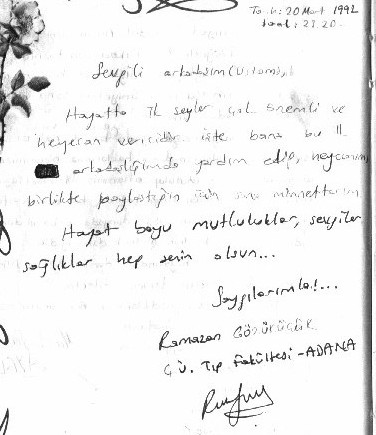 Tarih: 20 Mart 1992
Saat: 21.20
Sevgili arkadaşım
Hayatta ilk şeyler çok önemli ve
heyecan vericidir. İşte bana bu ilk
arkadaşlığımda yardım edip, heycanımı
birlikte paylaştığın için sana minnettarım
Hayat boyu mutluluklar, sevgiler
sağlıklar hep senin olsun...
Saygılarımla!...
Ramazan
Ç.Ü. Tıp Fakültesi - ADANA